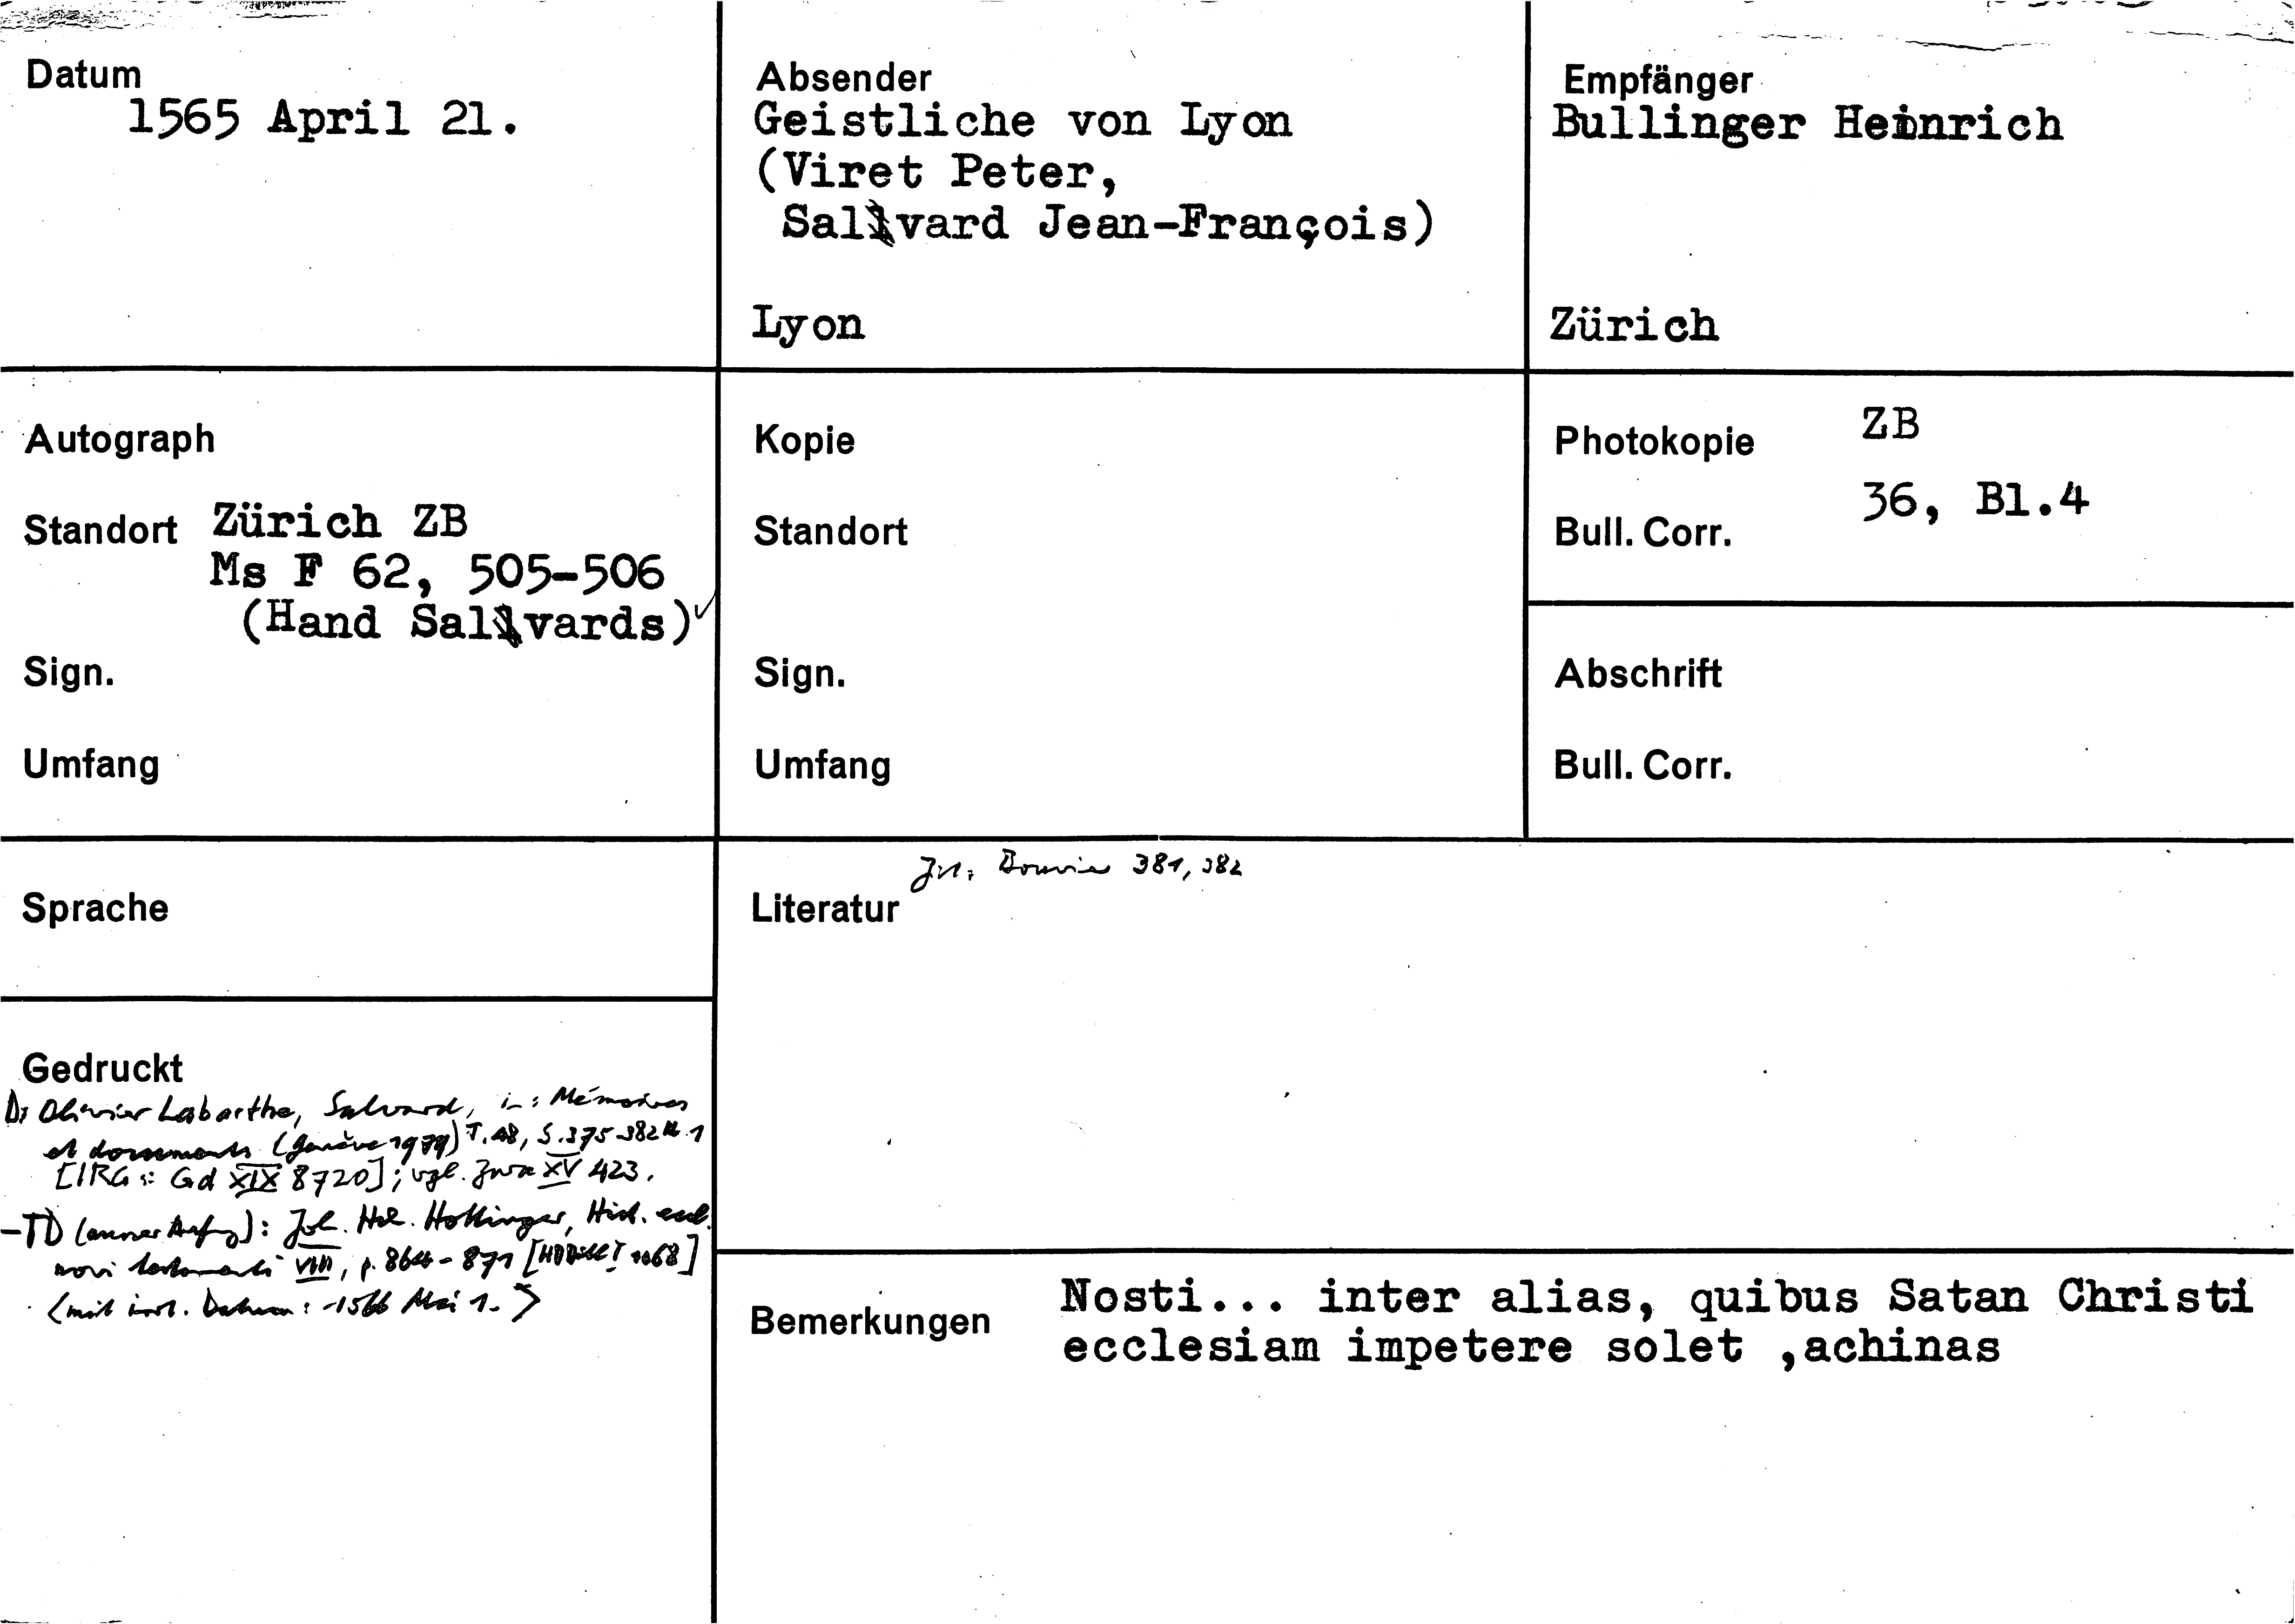 Datum
1565 April 21.
Absender
Geistliche von Lyon
(Viret Peter,
Salvard Jean-François)
Lyon
Empfänger
Bullinger Heinrich
Zürich
Autograph
Standort Zürich ZB
Ms F 62, 505-506
(Hand Salvards)✓
Sign.
Umfang
Kopie
Standort
Sign.
Umfang
Photokopie ZB
Bull. Corr. 36, Bl.4
Abschrift
Bull. Corr.
Sprache
Literatur 381, 382
Gedruckt
D: Olivier Labarthe, Salvard, in: Mémoires
et documents (Genève 1979) T. 48, S. 375-382 N. 1
[IRG: Gd XIX 8720]; vgl. Zwa XV 423.
-TD (ausser Anfg): Joh. Hch. Hottinger, Hist. eccl.
novi testamenti VIII, p. 864-871
(mit irrt. Datum: -1566 Mai 1.)
Bemerkungen Nosti... inter alias, quibus Satan Christi
ecclesiam impetere solet ,achinas